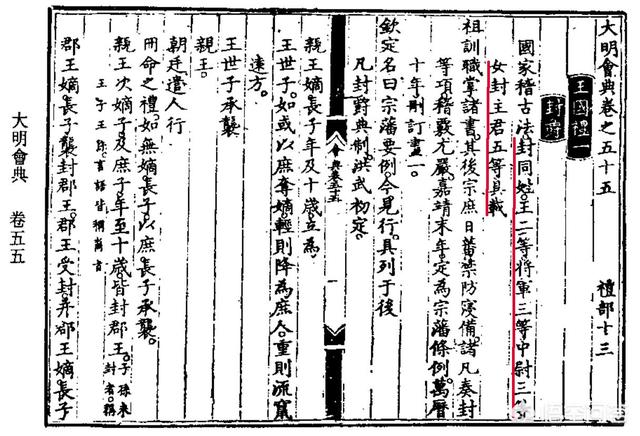 大明會典卷之五十五 禮部十三
王國禮一
封爵
國家稽古法封同姓。王二等將軍三等中尉三等
女封主君五等具載
祖訓職掌諸書。其後宗庶日蕃禁防寖備。諸凡奏封
等項。稽覈尤嚴。嘉靖末年。定為宗藩條例。萬曆
十年。刪訂畫一。
欽定名曰宗藩要例。今見行。具列于後
凡封爵典制。洪武初定。
會典卷五十五
一
親王嫡長子年及十歲。立為
王世子。如或以庶奪嫡。輕則降為庶人。重則流竄
遠方。
王世子承襲
親王。
朝廷遣人行
冊命之禮。如無嫡子。以庶長子承襲。
親王次嫡子及庶子。年至十歲。皆封郡王。子孫未封者。稱
王子王孫。言語皆稱裔旨
郡王嫡長子襲封郡王。郡王受封。并郡王嫡長子
大明會典 卷五五